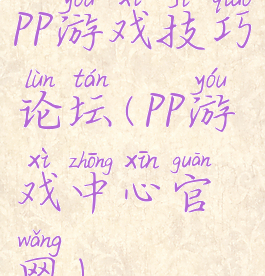 yóu xì jì qiǎo
PP游戏技巧
lùn tán yóu
论坛(PP游
xì zhōng xīn guān
戏中心官
wǎng
网)